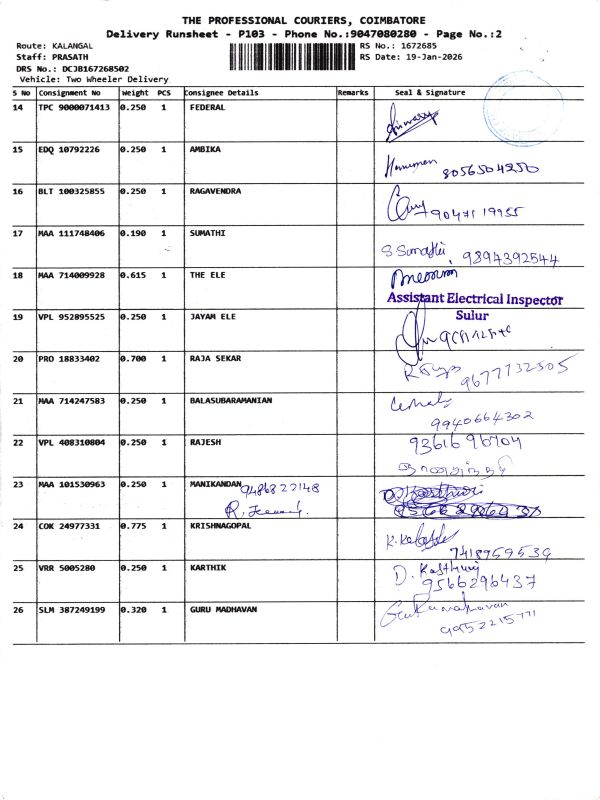 THE PROFESSIONAL COURIERS, COIMBATORE
Delivery Runsheet - P103 - Phone No.:9047080280 - Page No.:2
Route: KALANGAL
RS No.: 1672685
Staff: PRASATH
RS Date: 19-Jan-2026
DRS No.: DCJB167268502
Vehicle: Two Wheeler Delivery
S No Consignment No Weight PCS Consignee Details Remarks Seal & Signature
14 TPC 9000071413 0.250 1 FEDERAL
15 EDQ 10792226 0.250 1 AMBIKA
8056504250
16 BLT 100325855 0.250 1 RAGAVENDRA
9047119955
17 MAA 111748406 0.190 1 SUMATHI
S Sumathi, 9894392544
18 MAA 714009928 0.615 1 THE ELE
Assistant Electrical Inspector
Sulur
19 VPL 952895525 0.250 1 JAYAM ELE
20 PRO 18833402 0.700 1 RAJA SEKAR
9677732505
21 MAA 714247583 0.250 1 BALASUBARAMANIAN
9940664302
22 VPL 408310804 0.250 1 RAJESH
9361696704
23 MAA 101530963 0.250 1 MANIKANDAN 9486822148
24 COK 24977331 0.775 1 KRISHNAGOPAL
7418959539
25 VRR 5005280 0.250 1 KARTHIK
D. Kasthuri
9566296437
26 SLM 387249199 0.320 1 GURU MADHAVAN
9952215771